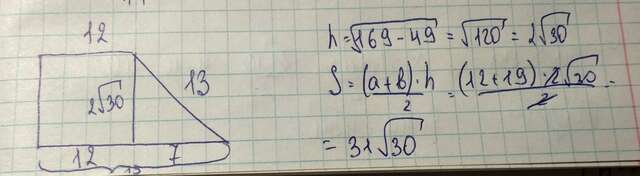 12
2√30
13
12
7
h=√169-49 = √120 = 2√30
S = (a+b)·h/2 = (12+19)·2√30/2 =
= 31√30